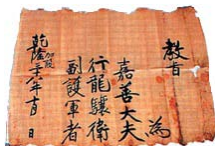 教旨
爲
嘉善大夫
行龍驤衛
副護軍者
乾隆
年十月 日